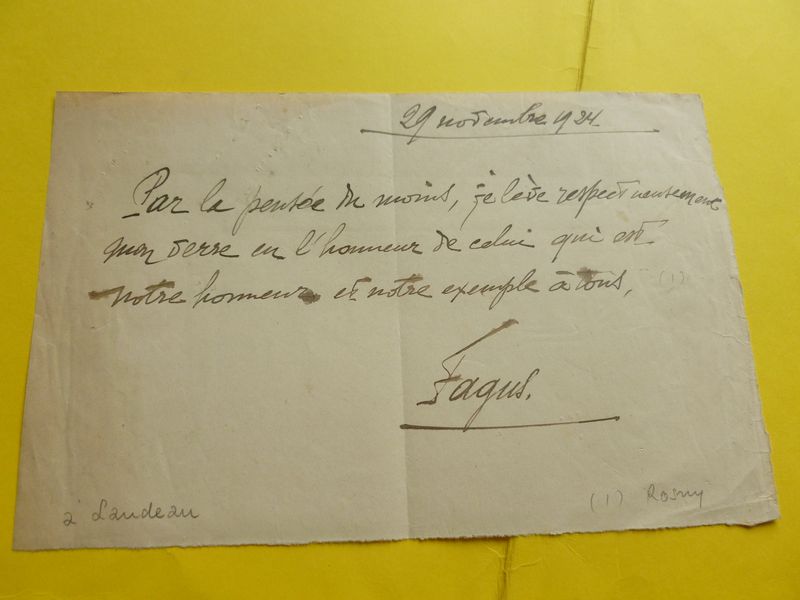 29 novembre 1924
Par la pensée du moins, je lève respectueusement
mon verre en l'honneur de celui qui est
notre honneur et notre exemple à tous, (1)
Fagus.
à Landeau
(1) Rosny